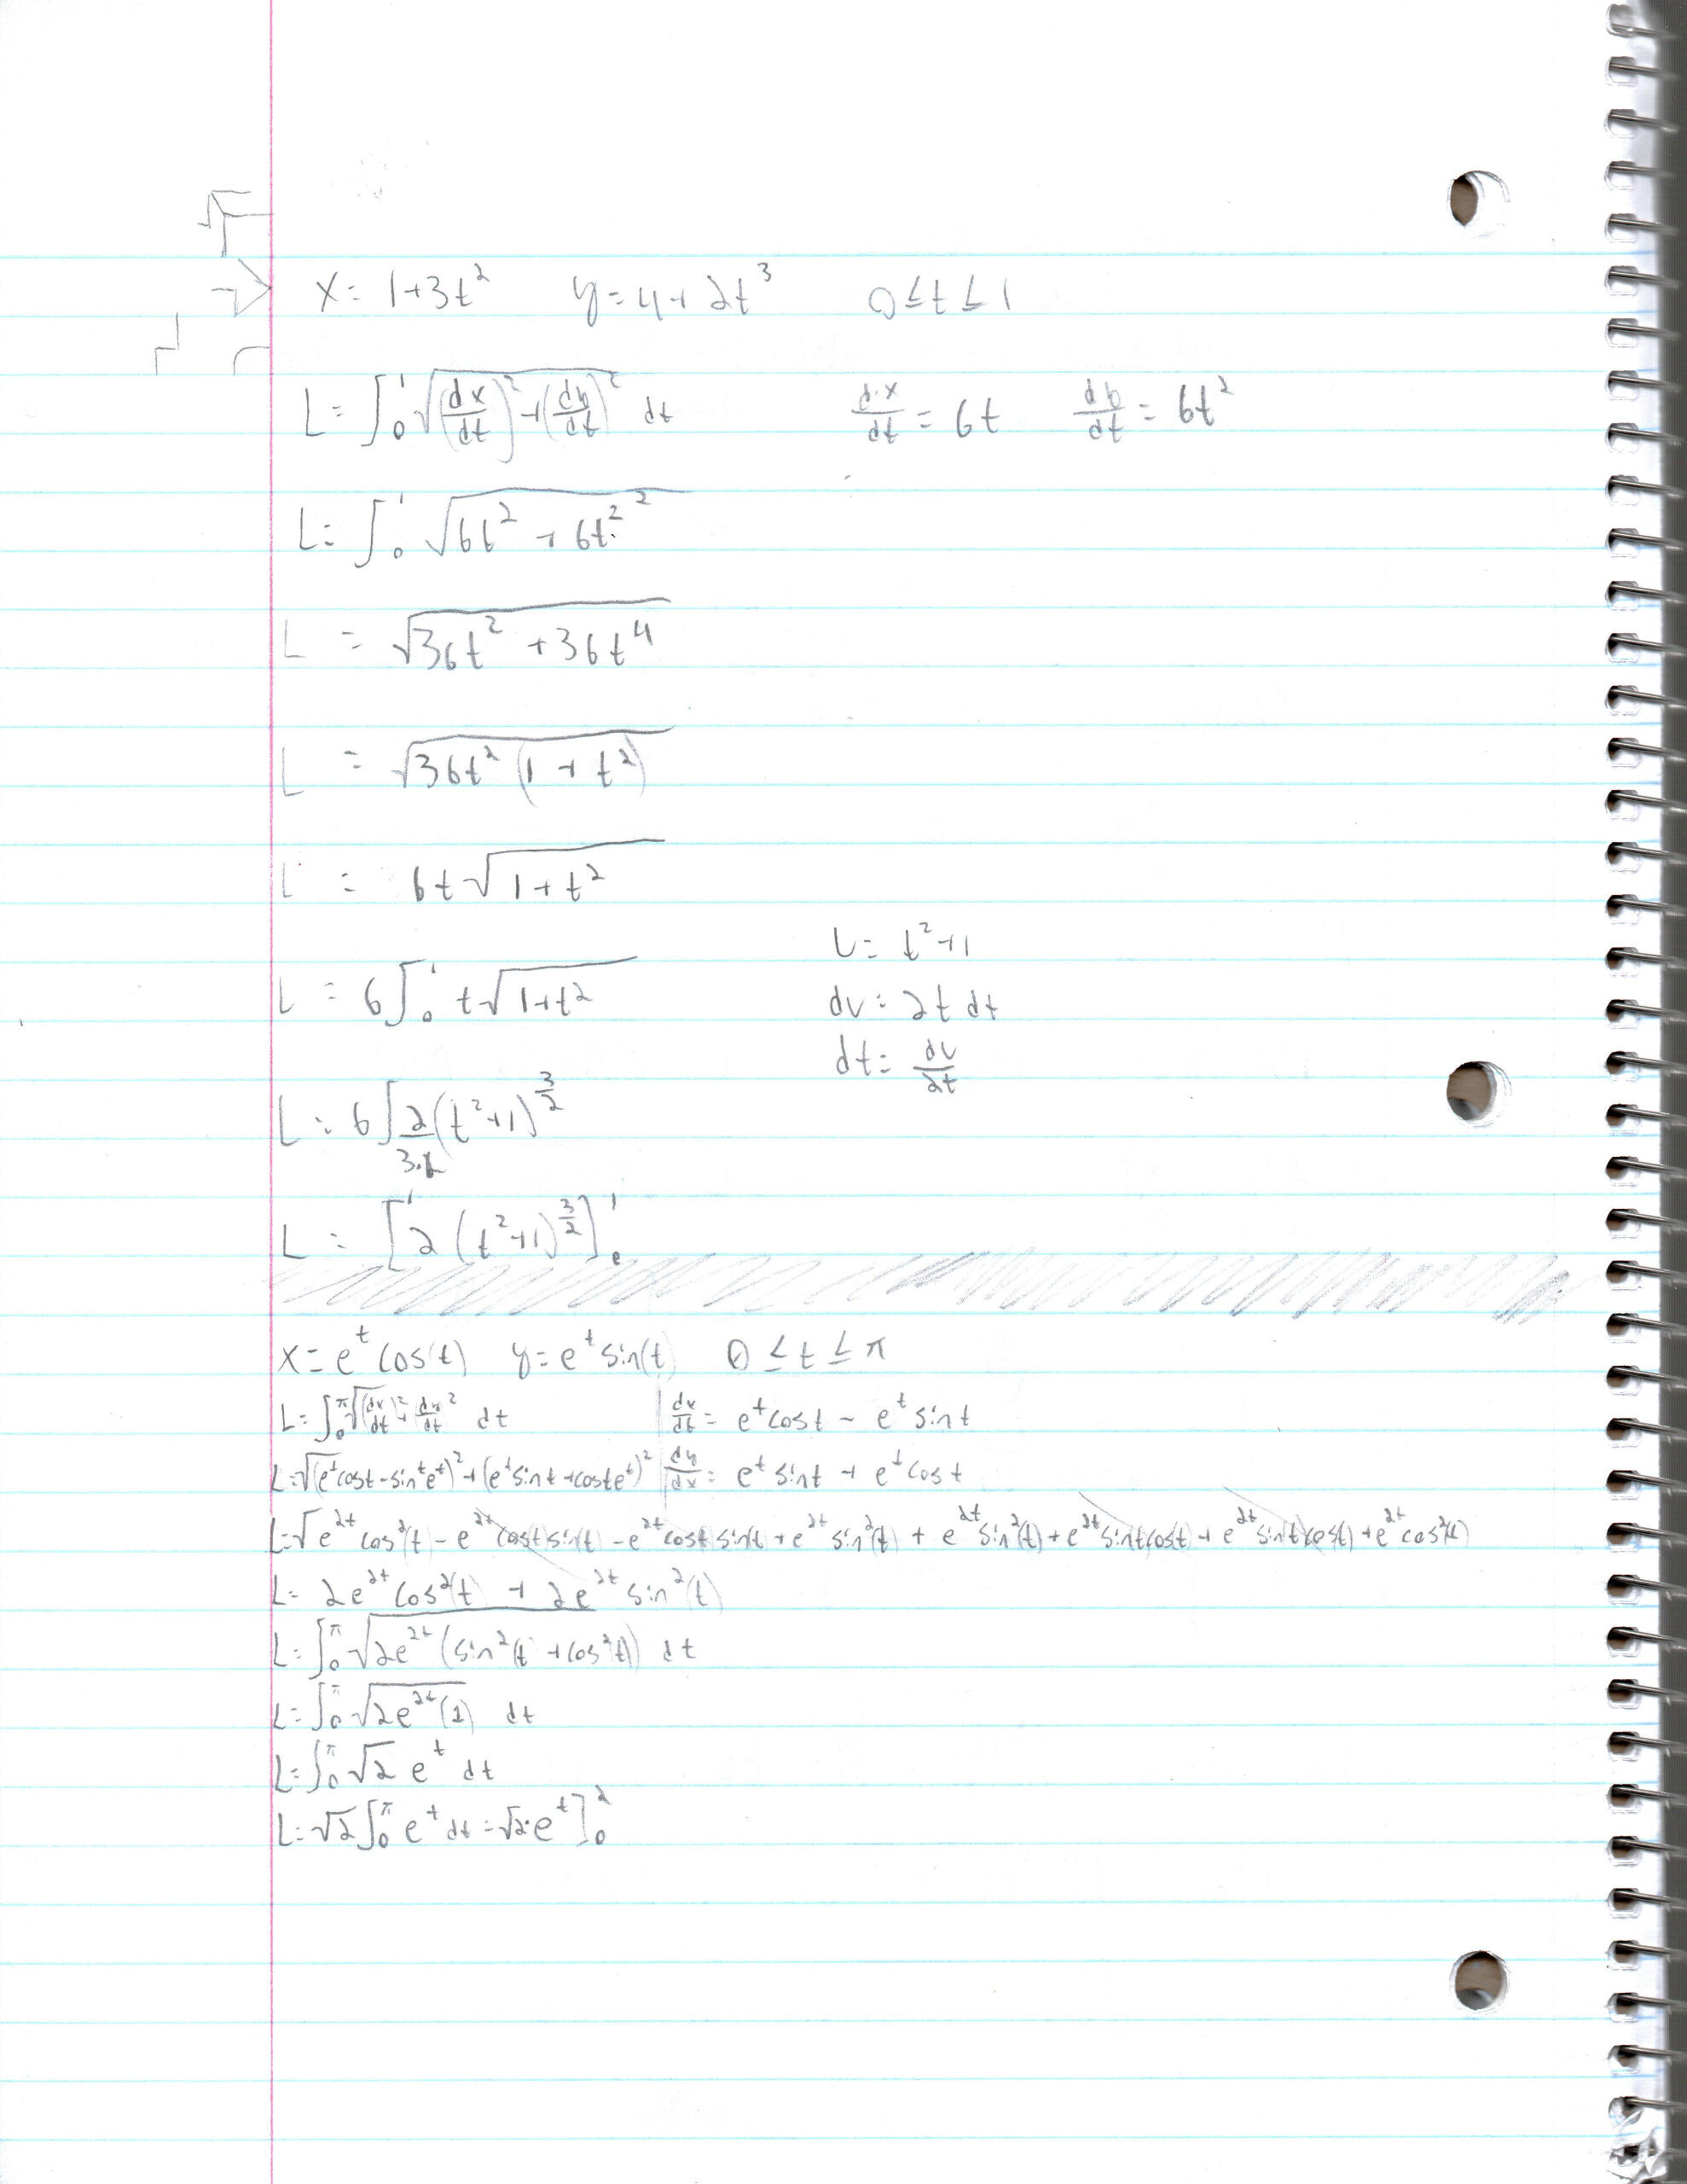 x = 1+3t² y = 4+2t³ 0 ≤ t ≤ 1
L = ∫₀¹ √((dx/dt)² + (dy/dt)²) dt dx/dt = 6t dy/dt = 6t²
L = ∫₀¹ √(6t² + 6t²²)
L = √(36t² + 36t⁴)
L = √(36t²(1 + t²))
L = 6t√(1+t²)
U = t²+1
L = 6∫₀¹ t√(1+t²) du = 2t dt
dt = du/2t
L = 6∫ 2/(3·2) (t²+1)^(3/2)
L = [2(t²+1)^(3/2)]₀¹
x = e^t cos(t) y = e^t sin(t) 0 ≤ t ≤ π
L = ∫₀^π √((dx/dt)² + dy/dt²) dt dx/dt = e^t cost - e^t sint
L = √((e^t cost - sin^t e^t)² + (e^t sint + cost e^t)²) dy/dx = e^t sint + e^t cost
L = √e^2t cos²(t) - e^2t cost sin(t) - e^2t cost sint + e^2t sin²(t) + e^2t sin²(t) + e^2t sint cos(t) + e^2t sin(t) cos(t) + e^2t cos²(t)
L = 2e^2t cos²(t) + 2e^2t sin²(t)
L = ∫₀^π √(2e^2t (sin²(t + cos²t)) dt
L = ∫₀^π √(2e^2t (1)) dt
L = ∫₀^π √2 e^t dt
L = √2 ∫₀^π e^t dt = √2·e^t]₀²